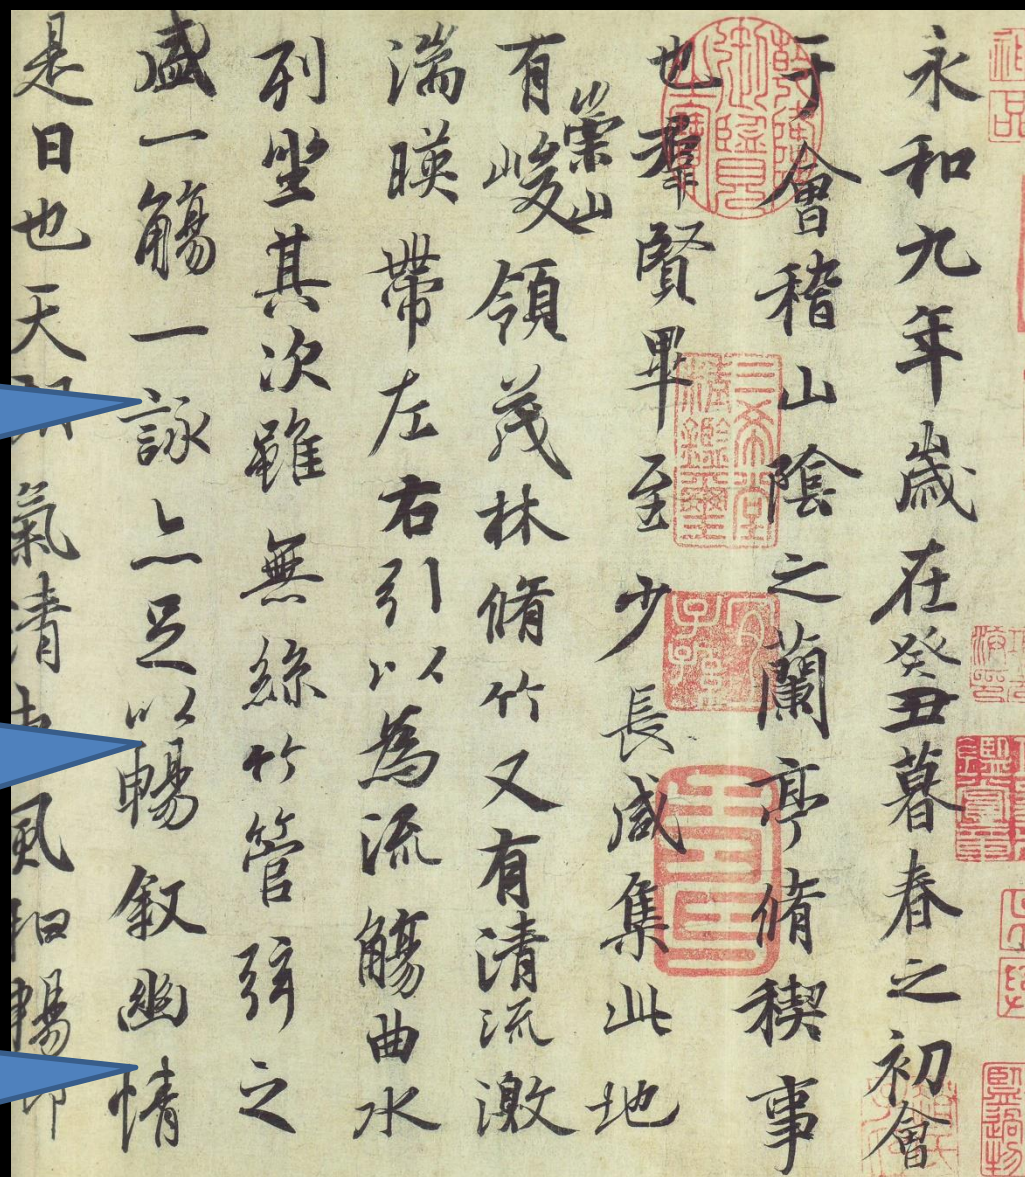 永和九年歲在癸丑暮春之初會
于會稽山陰之蘭亭脩稧事
也羣賢畢至少長咸集此地
有崇山峻領茂林脩竹又有清流激
湍暎帶左右引以為流觴曲水
列坐其次雖無絲竹管弦之
盛一觴一詠亦足以暢敘幽情
是日也天朗氣清風和暢仰
三希堂精鑑璽
宜子孫
神品